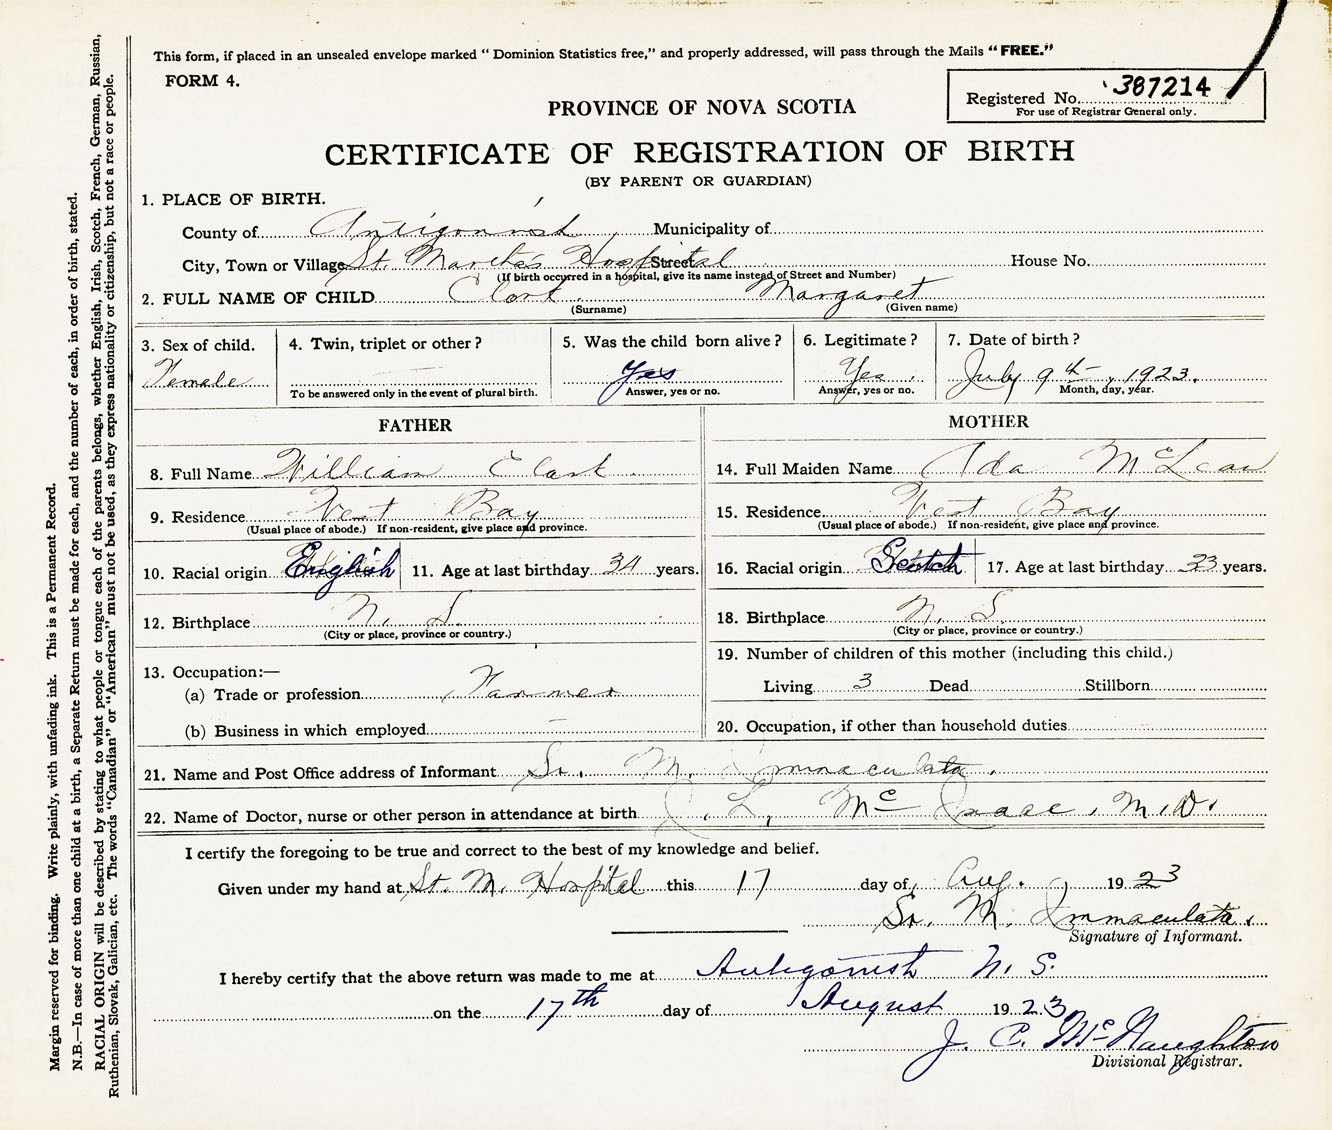 This form, if placed in an unsealed envelope marked “ Dominion Statistics free,” and properly addressed, will pass through the Mails “ FREE.”
FORM 4.
Registered No. 387214
For use of Registrar General only.
PROVINCE OF NOVA SCOTIA
CERTIFICATE OF REGISTRATION OF BIRTH
(BY PARENT OR GUARDIAN)
1. PLACE OF BIRTH.
County of Antigonish Municipality of
City, Town or Village St. Martha's Hospital Street House No.
(If birth occurred in a hospital, give its name instead of Street and Number)
2. FULL NAME OF CHILD Clark Margaret
(Surname) (Given name)
3. Sex of child. 4. Twin, triplet or other ? 5. Was the child born alive ? 6. Legitimate ? 7. Date of birth ?
Female Yes Yes July 9th, 1923.
To be answered only in the event of plural birth. Answer, yes or no. Answer, yes or no. Month, day, year.
FATHER
8. Full Name William Clark
9. Residence West Bay
(Usual place of abode.) If non-resident, give place and province.
10. Racial origin English 11. Age at last birthday 34 years.
12. Birthplace N. S.
(City or place, province or country.)
13. Occupation:—
(a) Trade or profession Farmer
(b) Business in which employed
MOTHER
14. Full Maiden Name Ida McLean
15. Residence West Bay
(Usual place of abode.) If non-resident, give place and province.
16. Racial origin Scotch 17. Age at last birthday 23 years.
18. Birthplace N. S.
(City or place, province or country.)
19. Number of children of this mother (including this child.)
Living 3 Dead Stillborn
20. Occupation, if other than household duties
21. Name and Post Office address of Informant Sr. M. Immaculata.
22. Name of Doctor, nurse or other person in attendance at birth J. L. McIsaac, M.D.
I certify the foregoing to be true and correct to the best of my knowledge and belief.
Given under my hand at St. M. Hospital this 17 day of Aug. 1923
Sr. M. Immaculata.
Signature of Informant.
I hereby certify that the above return was made to me at Antigonish N. S.
on the 17th day of August 1923
J. C. McNaughton
Divisional Registrar.
Margin reserved for binding. Write plainly, with unfading ink. This is a Permanent Record.
N.B.—In case of more than one child at a birth, a Separate Return must be made for each, and the number of each, in order of birth, stated.
RACIAL ORIGIN will be described by stating to what people or tongue each of the parents belongs, whether English, Irish, Scotch, French, German, Russian,
Ruthenian, Slovak, Galician, etc. The words “Canadian” or “American” must not be used, as they express nationality or citizenship, but not a race or people.